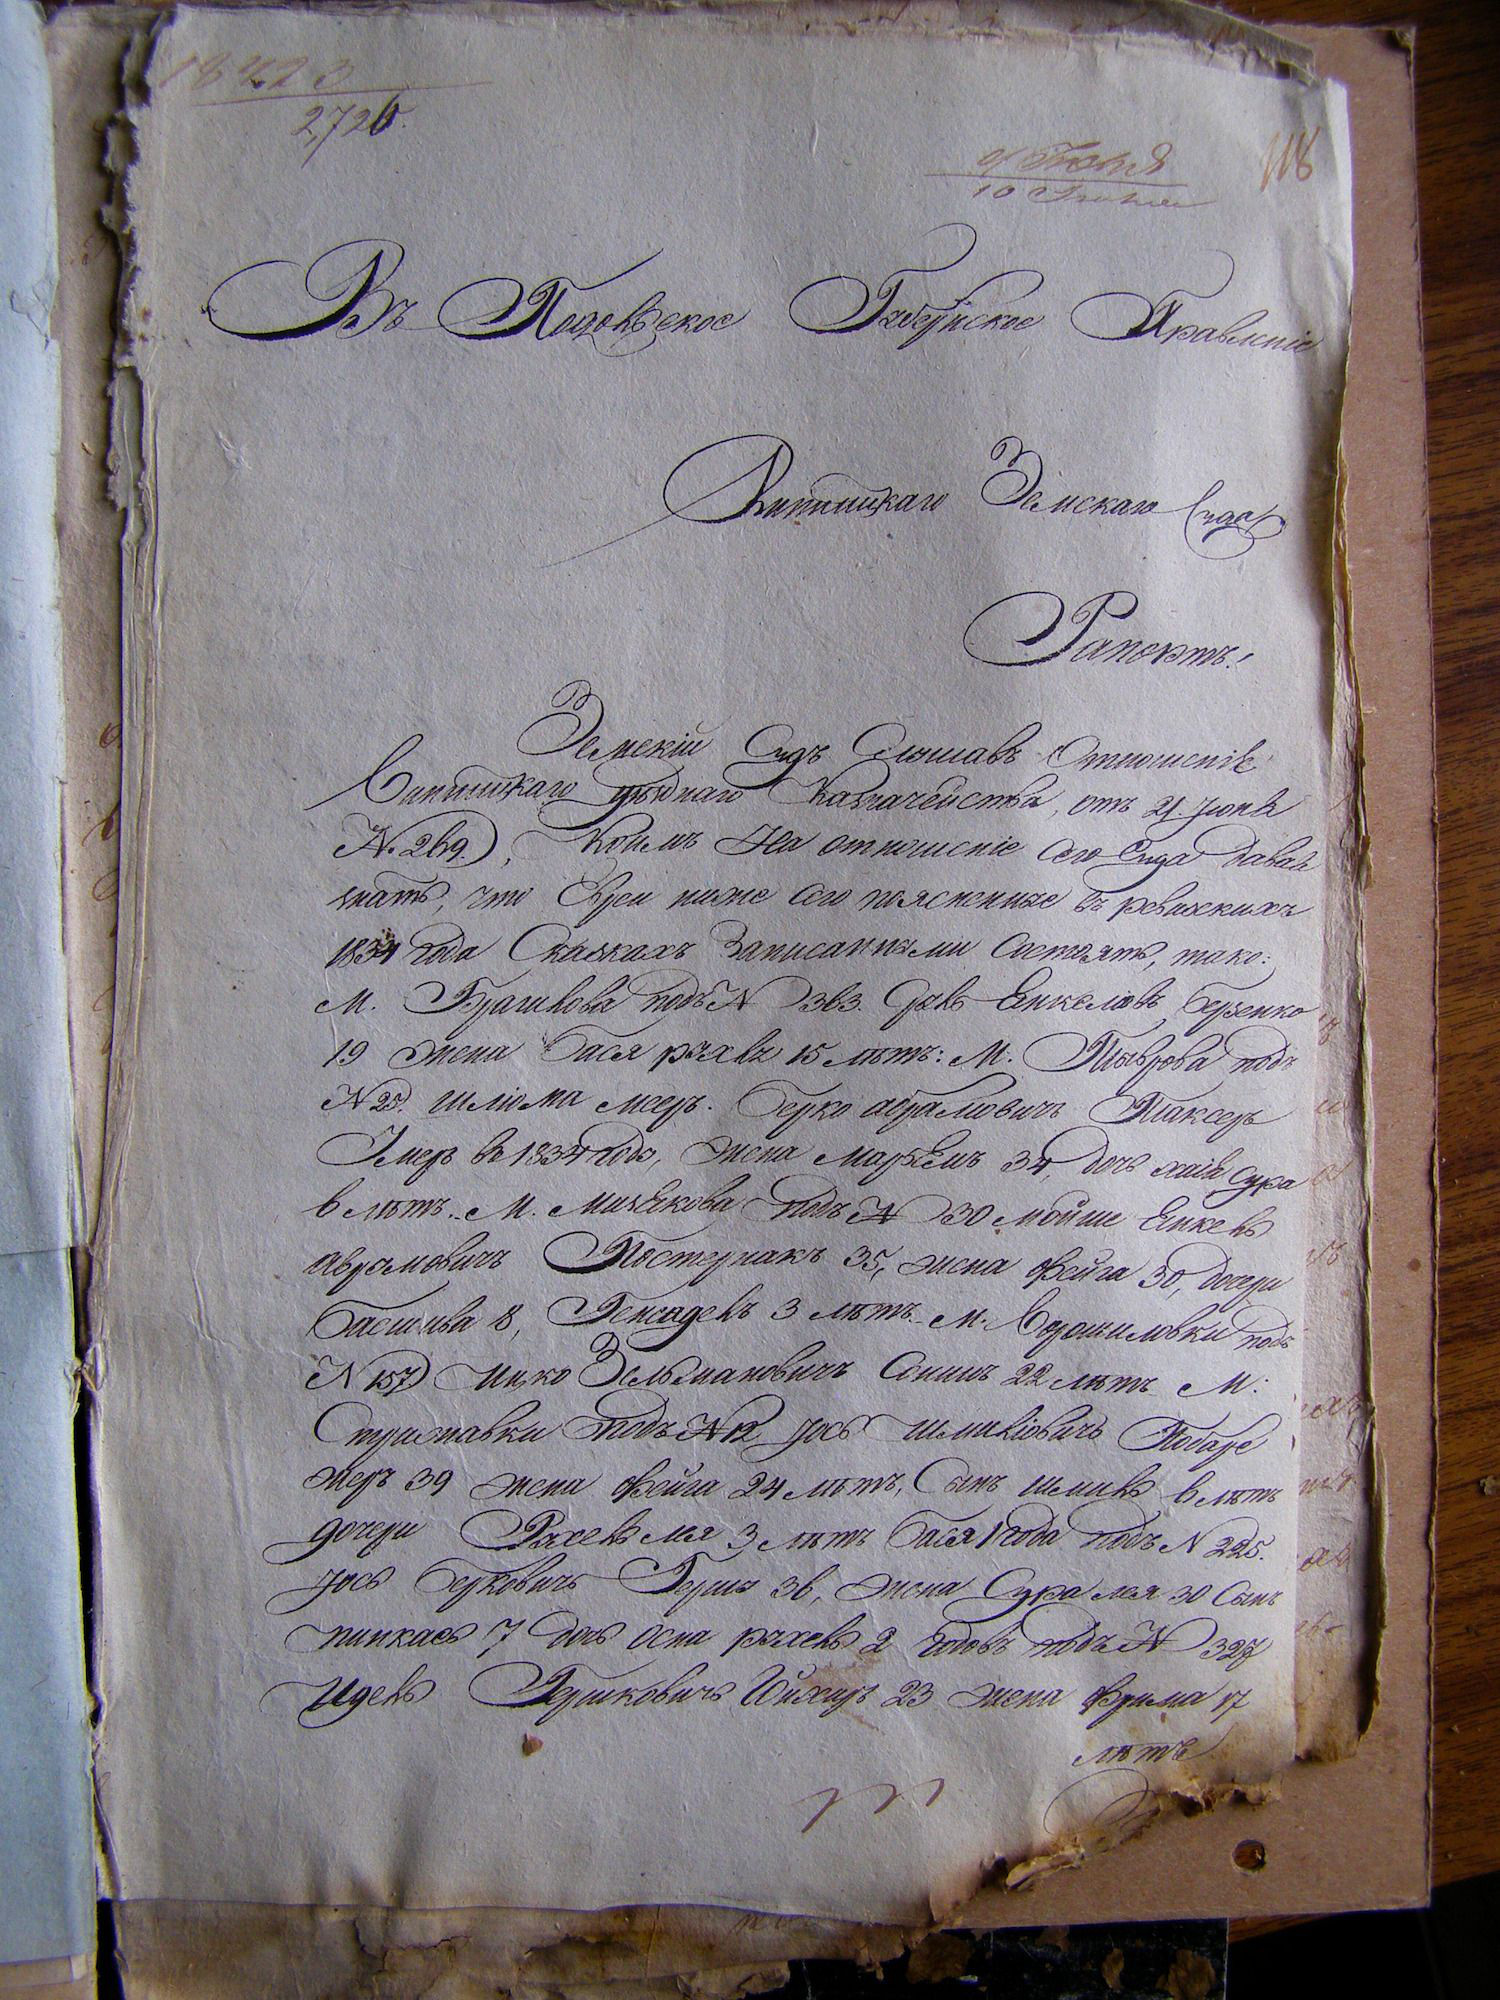 18423
2,726.
118
10 Іюня
Въ Подольское Губернское Правленіе
Винницкаго Земскаго Суда
Рапортъ!
Земскій Судъ Слышавъ Отношеніе
Винницкаго уѣзднаго Казначейства, отъ 21. Іюня
№ 269. Коимъ На отношеніе сего Суда давал
знать, что Евреи ниже сего поясненные въ ревизкихъ
1834 года Сказкахъ Записанными Состоятъ, тако:
М. Браилова подъ № 363. Янкелевъ Берзенко
19 жена Бася рухля 15 лѣтъ: М. Тыврова подъ
№ 25. шліома меер. Берко абрамовичъ Таксеръ
Умеръ въ 1834 года, жена маріемъ 34, дочь хаія Сура
6 лѣтъ. М. подъ № 30 мойше Янкель
аврамовичъ Постернакъ 35, жена фейга 30, дочери
Басшива 8, 3 лѣтъ. М. Ворошиловки подъ
№ 157 ицко Зельмановичъ 22 лѣтъ М:
Стрижавки подъ № 12 Іось шмилiовичъ Побере
жеръ 39 жена фейга 24 лѣтъ, Сынъ шмиль 6 лѣтъ
дочери Рухель лея 3 лѣтъ Бася 1 года подъ № 225.
Іось Берковичъ Гершъ 36, жена Сура лея 30 Сынъ
пинкасъ 7 дочь рухель 2 годовъ подъ № 327
идель Гершковичъ 23 жена фрима 17
лѣтъ